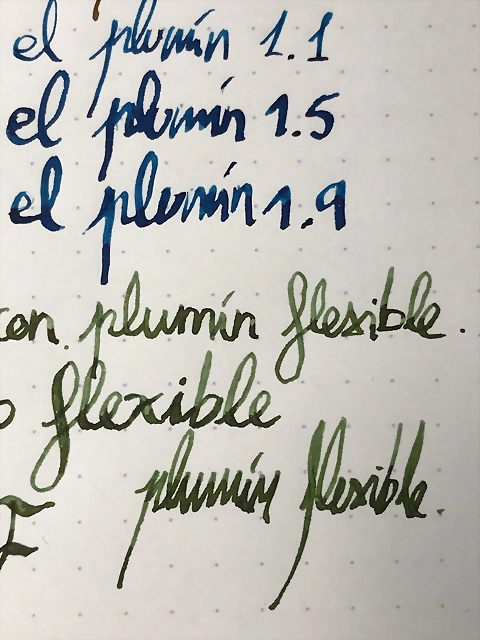 el plumín 1.1
el plumín 1.5
el plumín 1.9
con plumín flexible.
o flexible
plumín flexible
F